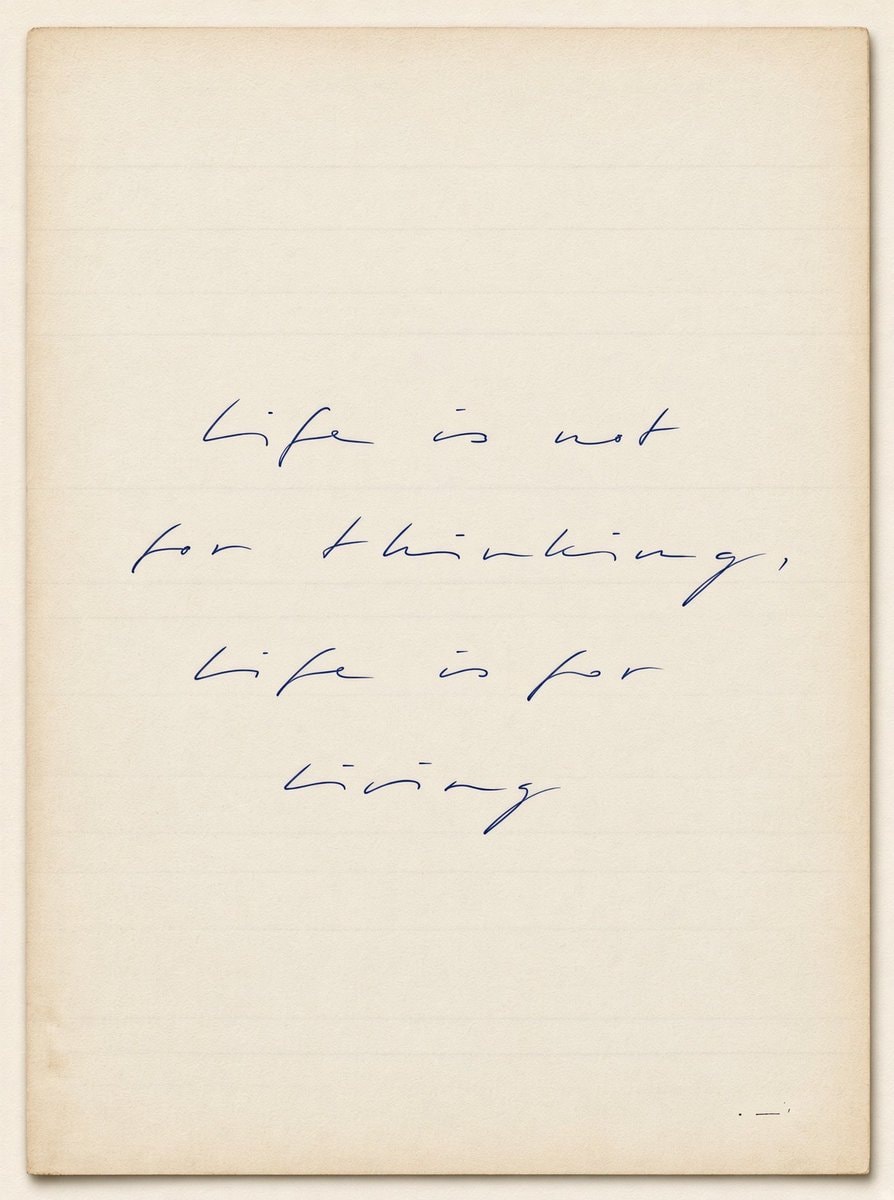 Life is not
for thinking,
Life is for
Living